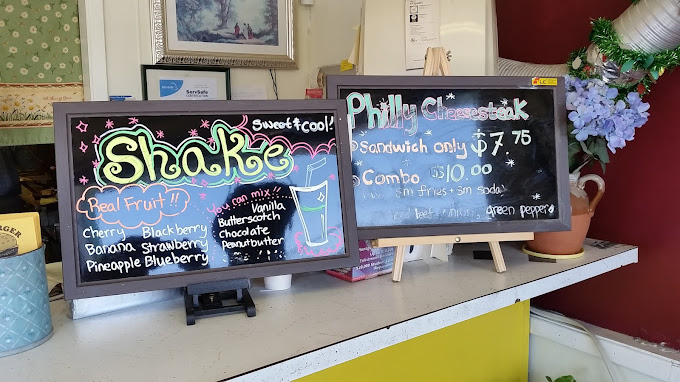 ServSafe
CERTIFICATION
Sweet & Cool!
Shake
Real Fruit!!
Cherry Blackberry
Banana Strawberry
Pineapple Blueberry
You can mix!!
Vanilla
Butterscotch
Chocolate
Peanutbutter
Philly Cheesesteak
Sandwich only $7.75
Combo $10.00
sm fries + sm soda
beef, onion, green pepper